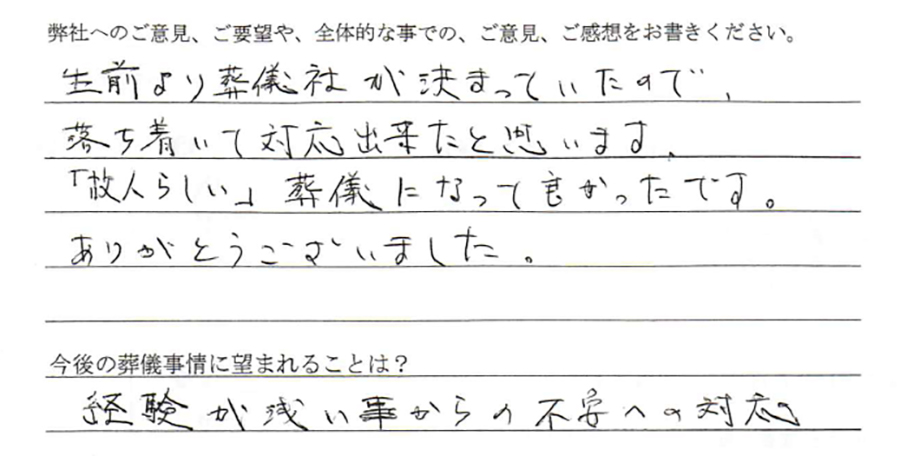 弊社へのご意見、ご要望や、全体的な事での、ご意見、ご感想をお書きください。
生前より葬儀社が決まっていたので、
落ち着いて対応出来たと思います、
「故人らしい」葬儀になって良かったです。
ありがとうございました。
今後の葬儀事情に望まれることは？
経験が浅い事からの不安への対応